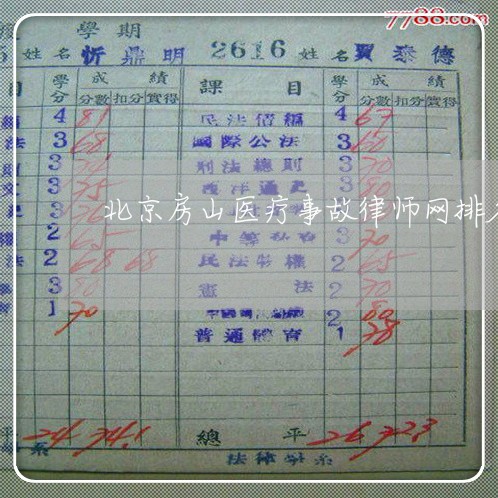 7788.com
學期
姓名 忻鼎明 2616 姓名 賈泰德
目 學分 成績 課目 學分 成績
分數 扣分 實得 分數 扣分 實得
4 81 民法債編 4 67
法 3 68 國際公法 3 60
3 刑法總則 3 70
3 75 西洋通史 3 80
北京房山医疗事故律师网排
2 65 3 70
法 2 68 68 民法物權 2 65
3 80 憲法 2 70
1 70 2 80
普通體育 1 78
平 24 74.1 總平 26 72.3
系 法律學系